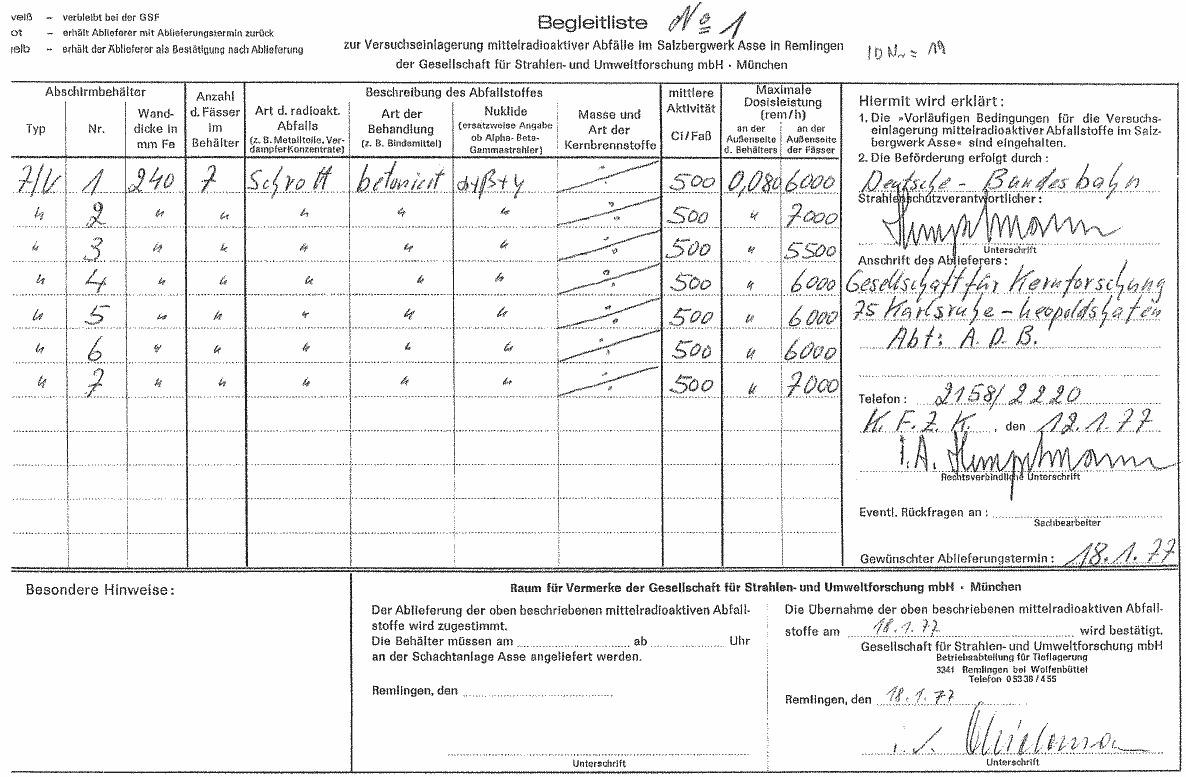 weiß – verbleibt bei der GSF
rot – erhält Ablieferer mit Ablieferungstermin zurück
gelb – erhält der Ablieferer als Bestätigung nach Ablieferung
Begleitliste № 1
zur Versuchseinlagerung mittelradioaktiver Abfälle im Salzbergwerk Asse in Remlingen
der Gesellschaft für Strahlen- und Umweltforschung mbH · München
ID Nr = 19
Abschirmbehälter
Typ
Nr.
Wand-
dicke in
mm Fe
Anzahl
d. Fässer
im
Behälter
Beschreibung des Abfallstoffes
Art d. radioakt.
Abfalls
(z. B. Metallteile, Ver-
dampferKonzentrate)
Art der
Behandlung
(z. B. Bindemittel)
Nuklide
(ersatzweise Angabe
ob Alpha- Beta-
Gammastrahler)
Masse und
Art der
Kernbrennstoffe
mittlere
Aktivität
Ci/Faß
Maximale
Dosisleistung
(rem/h)
an der
Außenseite
d. Behälters
an der
Außenseite
der Fässer
7/V 1 240 7 Schrott betoniert α+β+γ 500 0,080 6000
" 2 " " " " " " 500 " 7000
" 3 " " " " " " 500 " 5500
" 4 " " " " " " 500 " 6000
" 5 " " " " " " 500 " 6000
" 6 " " " " " " 500 " 6000
" 7 " " " " " " 500 " 7000
Hiermit wird erklärt:
1. Die »Vorläufigen Bedingungen für die Versuchs-
einlagerung mittelradioaktiver Abfallstoffe im Salz-
bergwerk Asse« sind eingehalten.
2. Die Beförderung erfolgt durch:
Deutsche - Bundesbahn
Strahlenschutzverantwortlicher:
Unterschrift
Anschrift des Ablieferers:
Gesellschaft für Kernforschung
75 Karlsruhe - Leopoldshafen
Abt: A. D. B.
Telefon: 2158/2220
K. F. Z. K. , den 12.1.77
I.A.
Rechtsverbindliche Unterschrift
Eventl. Rückfragen an:
Sachbearbeiter
Gewünschter Ablieferungstermin: 18.1.77
Besondere Hinweise:
Raum für Vermerke der Gesellschaft für Strahlen- und Umweltforschung mbH · München
Der Ablieferung der oben beschriebenen mittelradioaktiven Abfall-
stoffe wird zugestimmt.
Die Behälter müssen am ab Uhr
an der Schachtanlage Asse angeliefert werden.
Remlingen, den
Unterschrift
Die Übernahme der oben beschriebenen mittelradioaktiven Abfall-
stoffe am 18.1.77 wird bestätigt.
Gesellschaft für Strahlen- und Umweltforschung mbH
Betriebsabteilung für Tieflagerung
3341 Remlingen bei Wolfenbüttel
Telefon 05336/455
Remlingen, den 18.1.77
i.V.
Unterschrift